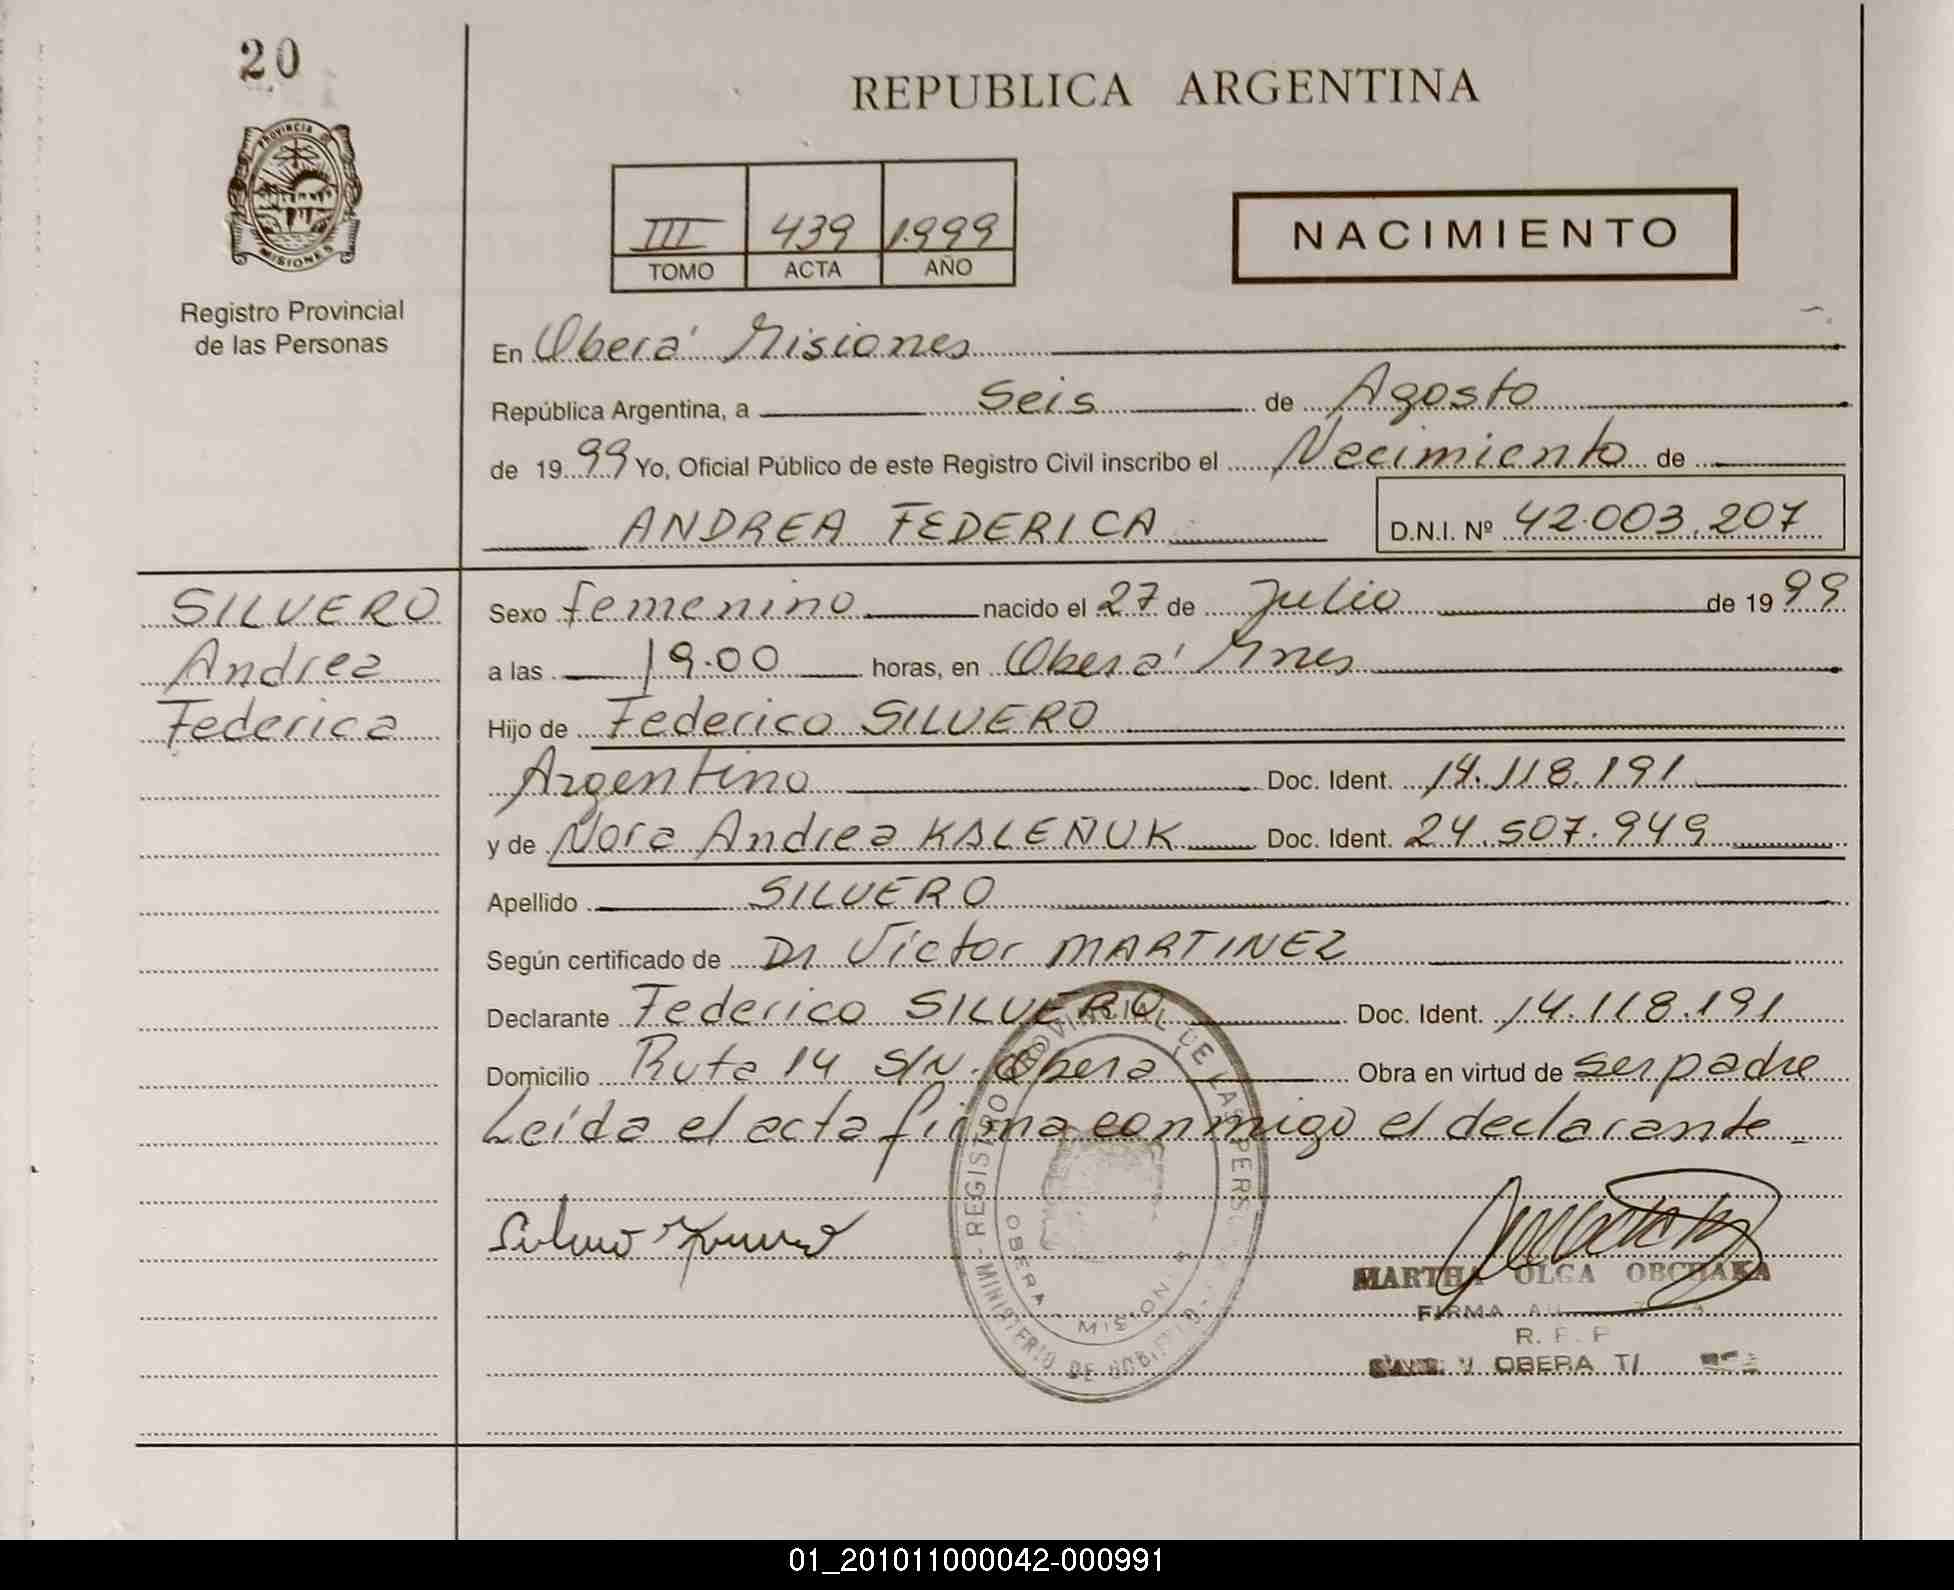 20
REPUBLICA ARGENTINA
PROVINCIA DE
MISIONES
Registro Provincial
de las Personas
III 439 1.999
TOMO ACTA AÑO
NACIMIENTO
En Oberá Misiones
República Argentina, a Seis de Agosto
de 1999 Yo, Oficial Público de este Registro Civil inscribo el Necimiento de
ANDREA FEDERICA D.N.I. Nº 42.003.207
SILVERO
Andrea
Federica
Sexo femenino nacido el 27 de Julio de 1999
a las 19.00 horas, en Oberá Mnes
Hijo de Federico SILVERO
Argentino Doc. Ident. 14.118.191
y de Nora Andrea KALEÑUK Doc. Ident. 24.507.949
Apellido SILVERO
Según certificado de Dr Víctor MARTINEZ
Declarante Federico SILVERO Doc. Ident. 14.118.191
Domicilio Ruta 14 S/N. Obera Obra en virtud de ser padre
Leída el acta firma conmigo el declarante
REGISTRO PROVINCIAL DE LAS PERS
OBERA MISION S
MINISTERIO DE GOBIE
MARTHA OLGA OBCHAKA
FIRMA
R.
OBERA
01_201011000042-000991